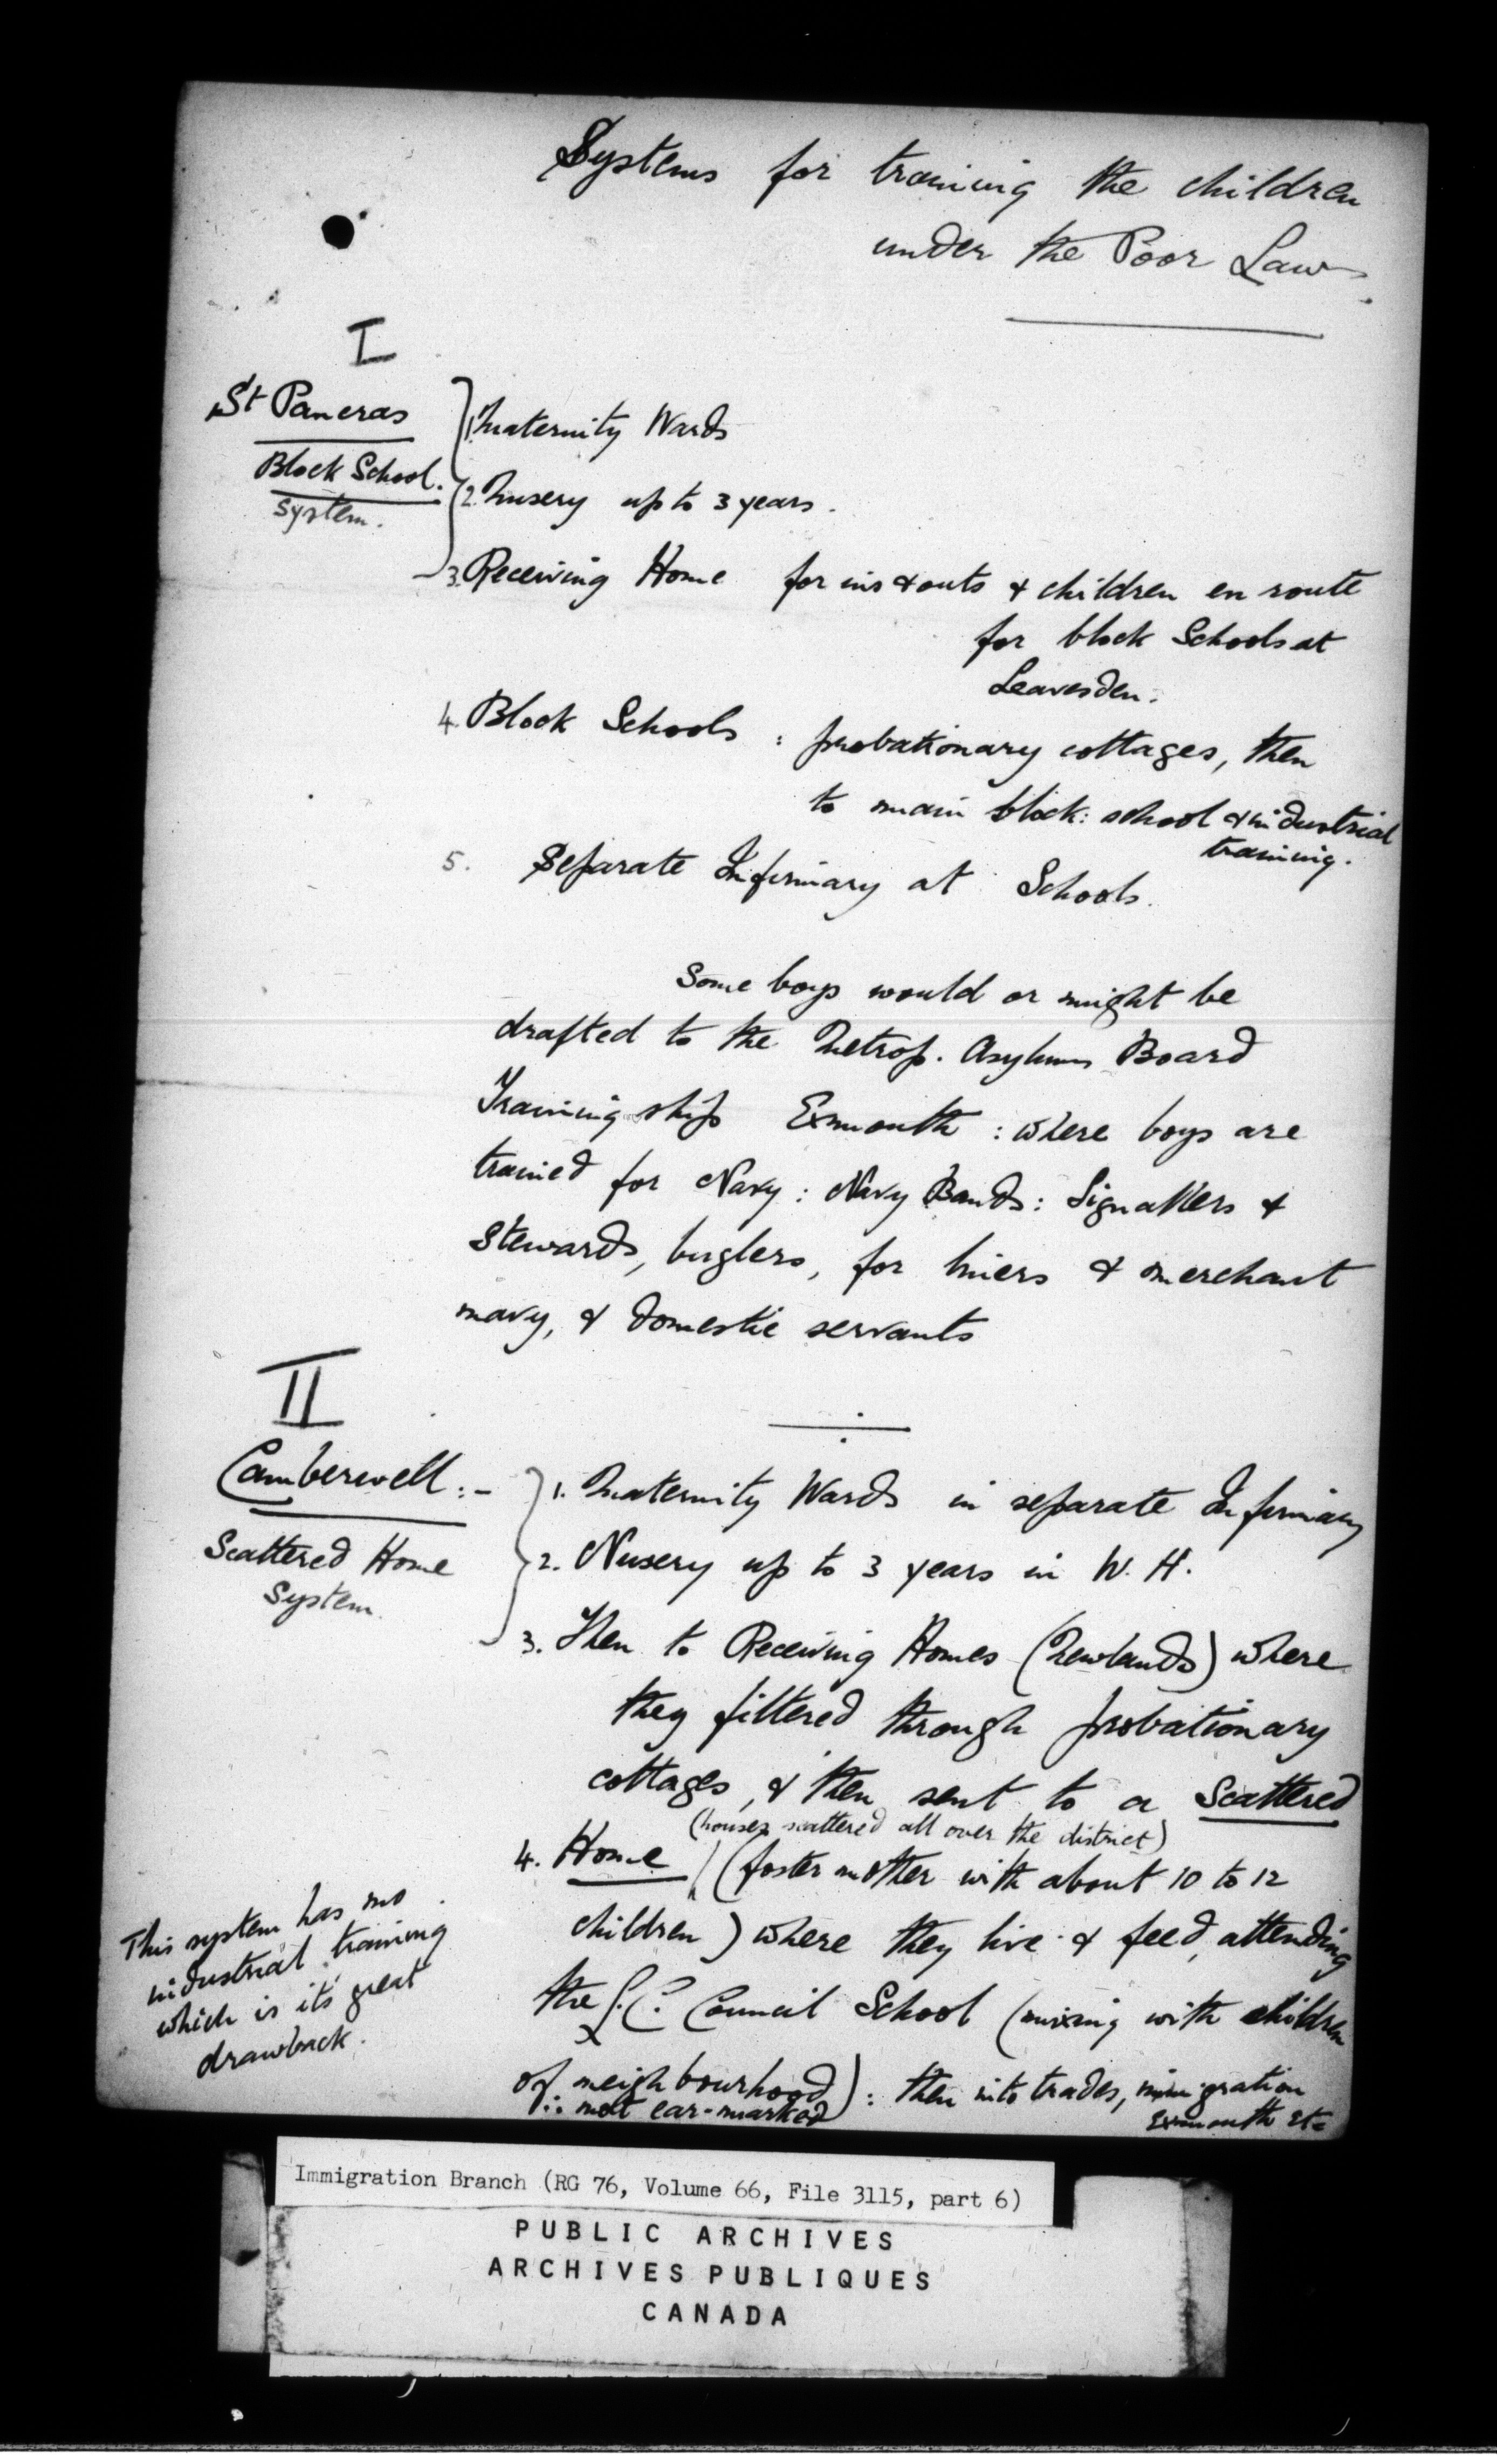 Systems for training the children
under the Poor Law.
I
St Pancras
Block School.
System.
1. Maternity Wards
2. Nusery up to 3 years.
3. Receiving Home for ins & outs & children en route
for block Schools at
Leavesden.
4. Block Schools : probationary cottages, then
to main block: school & industrial
training.
5. Separate Infirmary at Schools.
Some boys would or might be
drafted to the Metrop. Asylums Board
Training ship Exmouth : where boys are
trained for Navy : Navy Bands : Signallers &
Stewards, buglers, for liners & merchant
navy, & domestic servants
II
Camberwell :-
Scattered Home
System.
1. Maternity Wards in separate Infirmary
2. Nusery up to 3 years in W. H.
3. Then to Receiving Homes (Newlands) where
they filtered through probationary
cottages, & then sent to a Scattered
(houses scattered all over the district)
4. Home (foster mother with about 10 to 12
children) where they live & feed, attending
the L.C. Council School (mixing with children
of neighbourhood) : then into trades, migration
∴ not ear-marked
Exmouth etc
This system has no
industrial training
which is its great
drawback.
Immigration Branch (RG 76, Volume 66, File 3115, part 6)
PUBLIC ARCHIVES
ARCHIVES PUBLIQUES
CANADA